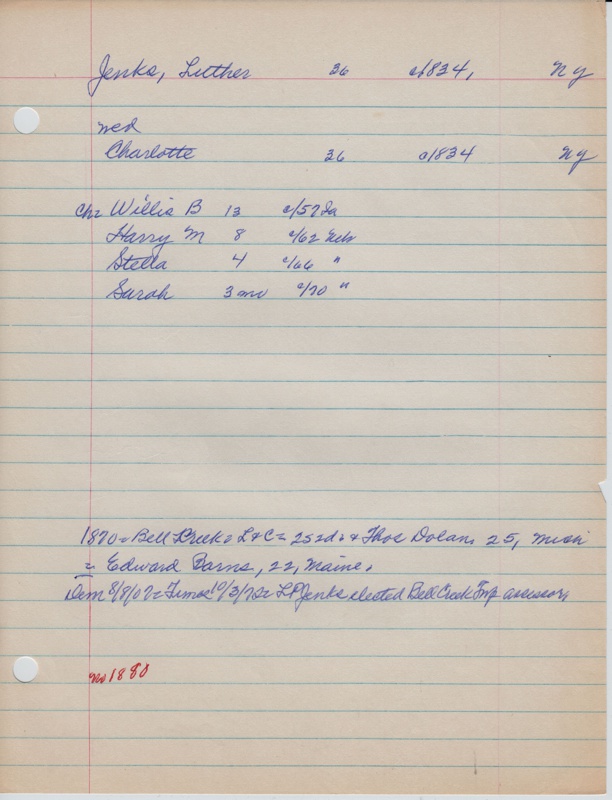 Jenks, Luther 36 c/1834, Ny
wed
Charlotte 36 c/1834 Ny
ch= Willis B 13 c/57 Ia
Harry M 8 c/62 Neb
Stella 4 c/66 "
Sarah 3 mo c/70 "
1870= Bell Creek= L & C= 252d= & Thos Dolan, 25, Mich
= Edward Barns, 22, Maine.
Dem 8/8/07= Times 10/3/72= L P Jenks elected Bell Creek Twp assessor,
no 1880